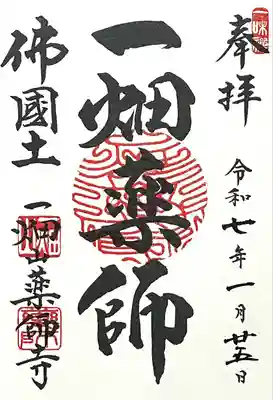 奉拝
令和七年一月廿五日
一畑薬師
佛國土
一畑山薬師寺